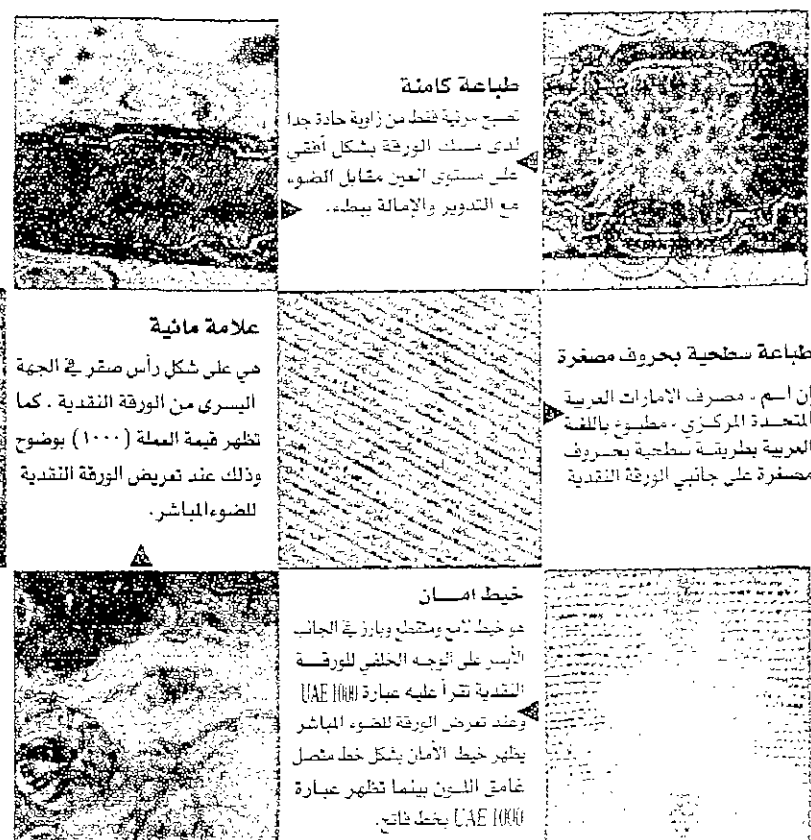 طباعة كامنة
تصبح مرئية فقط من زاوية حادة جدا
لدى مسك الورقة بشكل أفقي
على مستوى العين مقابل الضوء
مع التدوير والإمالة ببطء.
طباعة سطحية بحروف مصغرة
إن اسم ، مصرف الامارات العربية
المتحدة المركزي ، مطبوع باللغة
العربية بطريقة سطحية بحروف
مصغرة على جانبي الورقة النقدية
علامة مائية
هي على شكل رأس صقر في الجهة
اليسرى من الورقة النقدية . كما
تظهر قيمة العملة (١٠٠٠) بوضوح
وذلك عند تعريض الورقة النقدية
للضوء المباشر.
خيط امــان
هو خيط لامع ومتقطع وبارز في الجانب
الأيسر على الوجه الخلفي للورقة
النقدية تقرأ عليه عبارة UAE 1000
وعند تعرض الورقة للضوء المباشر
يظهر خيط الأمان بشكل خط متصل
غامق اللون بينما تظهر عبارة
UAE 1000 بخط فاتح.